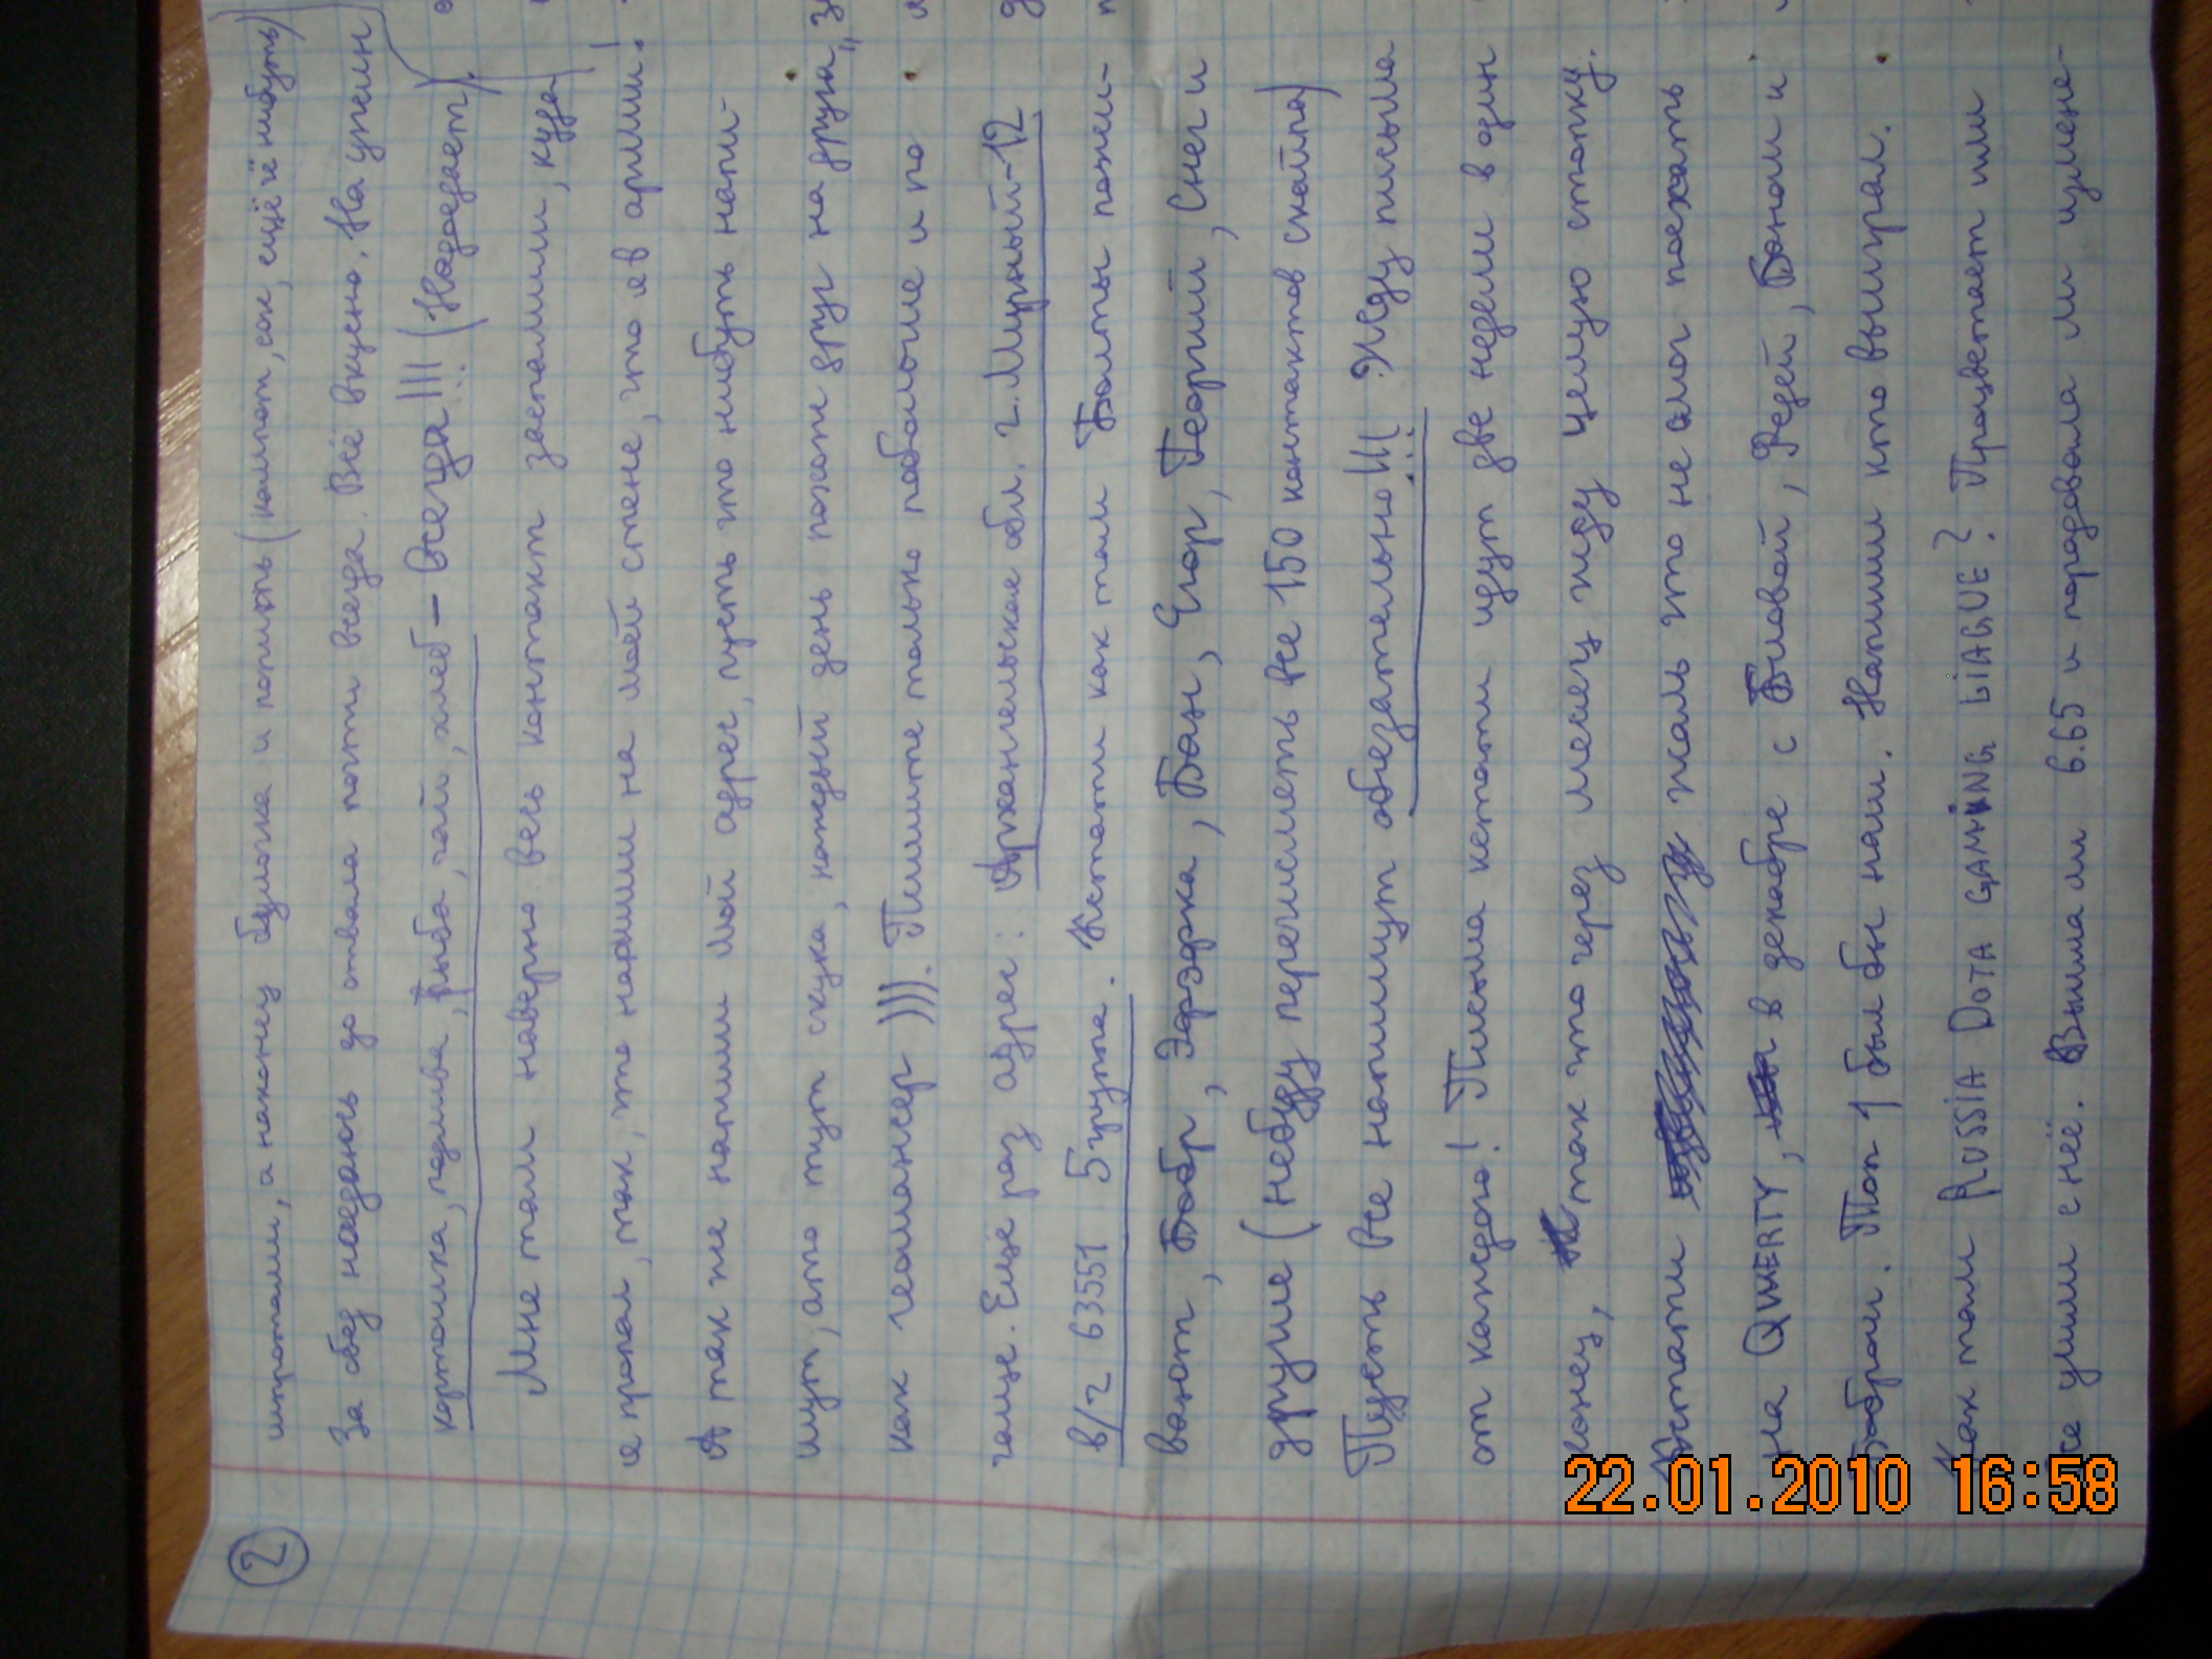 2
штротами, а наконец булочка и попить (компот, сок, ещё чё нибуть)
За обед наедаюсь до отвала почти всегда. Всё вкусно. На ужин
картошка, подлива, рыба, чай, хлеб – всегда!!! (Надоедает)
Мне там наверно весь контакт заспамили, куда
я пропал, так, что напиши на моей стене, что я в армии!
А так же напиши мой адрес, пусть что нибуть напи-
шут, ато тут скука, каждый день похож друг на друга,
как геомансер ))). Пишите только побольше и по
чаще. Ещё раз адрес: Архангельская обл. г. Мирный-12
в/ч 63551 5 група. Кстати как там Болты пожи-
вают, Бобр, Эдрэдка, Бан, Егор, Георгий, Снег и
другие (небуду перечислять все 150 контактов скайпа)
Пусть все напишут обезательно!!! Жду письма
от каждого! Письма кстати идут две недели в один
конец, так что через месец жду целую стопку.
Кстати жаль что не смог поехать
на QWERTY, в декабре с Биовой, Федей, Баном и
Бобром. Топ 1 был бы наш. Напиши кто выиграл.
Как там RUSSIA DOTA GAMING LIAGUE? Процветает или
все ушли с неё. Вышла ли 6.65 и порадовала ли измене-
22.01.2010 16:58